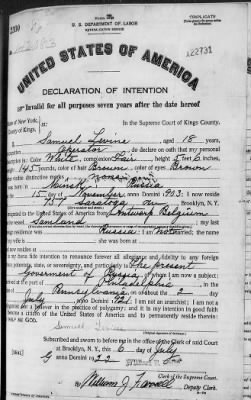 TRIPLICATE
U. S. DEPARTMENT OF LABOR
NATURALIZATION SERVICE
UNITED STATES OF AMERICA
DECLARATION OF INTENTION
Invalid for all purposes seven years after the date hereof
of New York,
County of Kings,
In the Supreme Court of Kings County.
Samuel Levine, aged 18 years,
occupation Operator, do declare on oath that my personal
description is: Color White, complexion Fair, height 5 feet inches,
145 pounds, color of hair Brown, color of eyes Brown
distinctive marks None
Minsk Russia
15 day of November, anno Domini 1903; I now reside
757 Saratoga Av Brooklyn, N. Y.
to the United States of America from Antwerp Belgium
Samland; my last
residence was Russia; I am not married; the name
wife is; she was born at
bona fide intention to renounce forever all allegiance and fidelity to any foreign
state, or sovereignty, and particularly to The present
Government of Russia, of whom I am now a subject;
at the port of Philadelphia, in the
Pennsylvania, on or about the day
July, anno Domini 1921; I am not an anarchist; I am not a
nor a believer in the practice of polygamy; and it is my intention in good faith
to become a citizen of the United States of America and to permanently reside therein:
HELP ME GOD.
Samuel Levine
Subscribed and sworn to before me in the office of the Clerk of said Court
at Brooklyn, N. Y., this 6 day of July
anno Domini 22
[SEAL]
Clerk of the Supreme Court.
By William J. Farrell, Deputy Clerk.